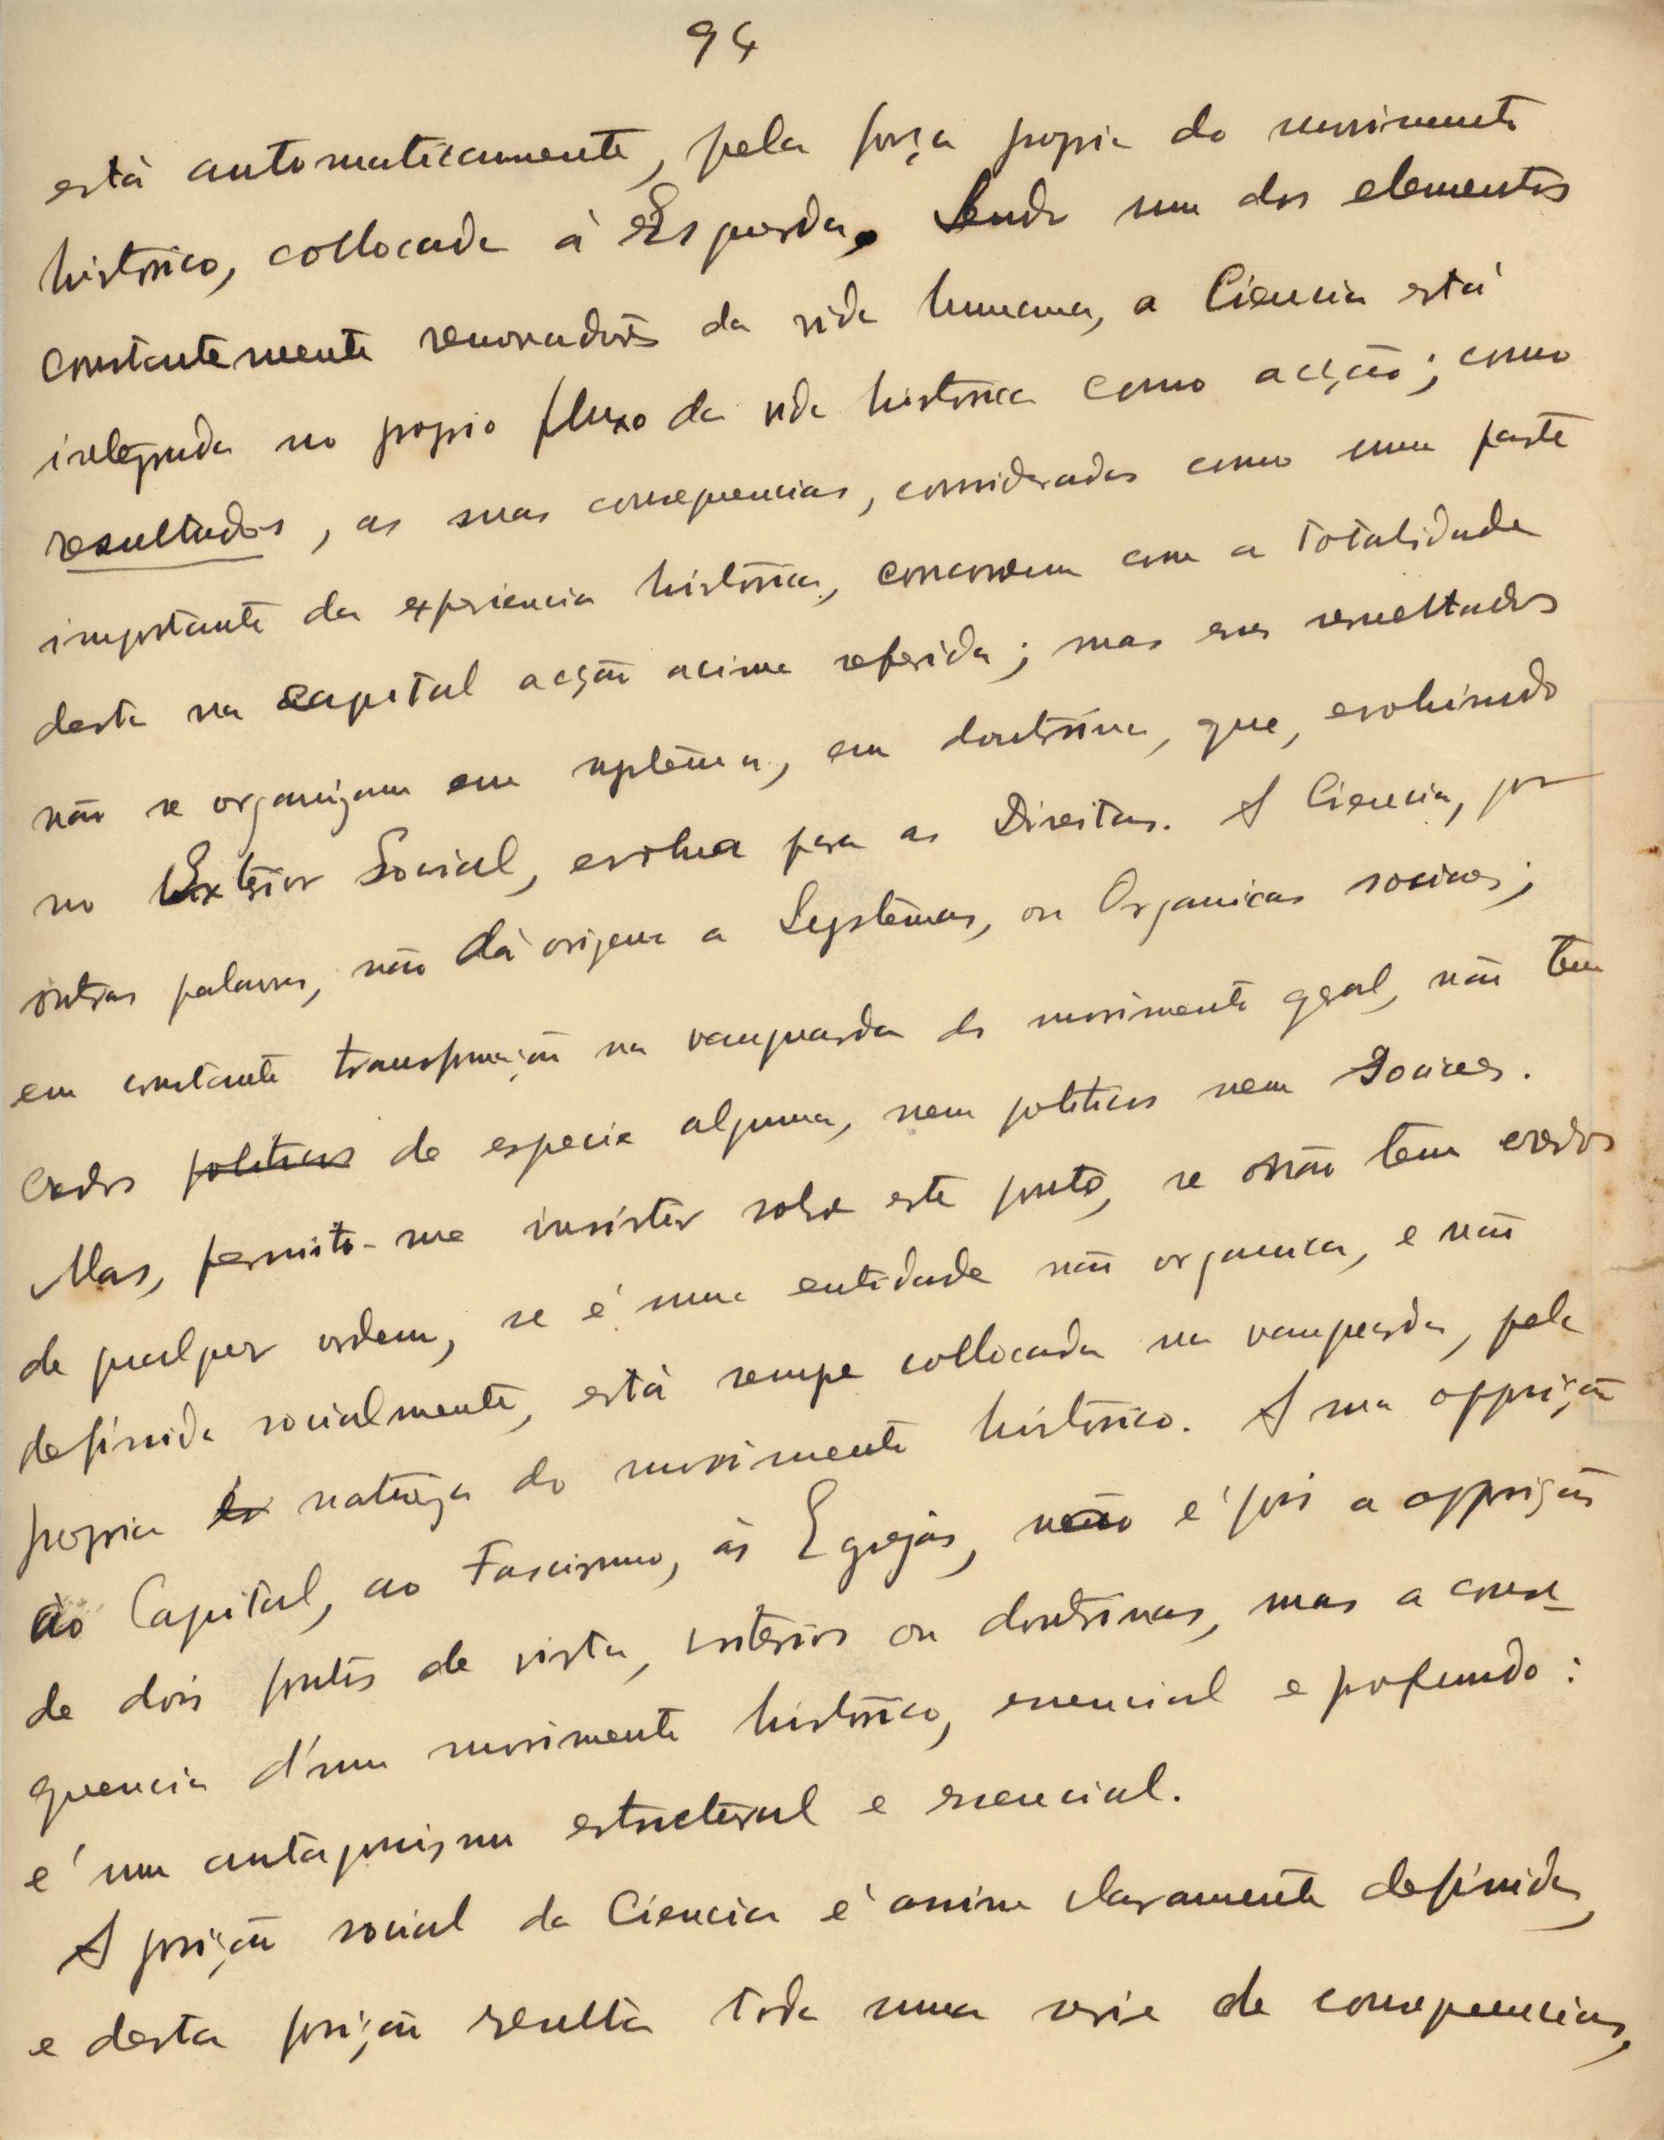 94
está automaticamente, pela força propria do movimento
historico, collocada á Esquerda. Sendo um dos elementos
constantemente renovadores da vida humana, a Ciencia está
integrada no proprio fluxo da vida historica como acção; como
resultados, as suas consequencias, consideradas como uma parte
importante da experiencia historica, concorrem com a totalidade
desta na capital acção acima referida; mas esses resultados
não se organizam em systema, em doutrina, que, evoluindo
no Exterior Social, evolua para as Direitas. A Ciencia, por
outras palavras, não dá origem a Systemas, ou Organicas sociaes;
em constante transformação na vanguarda do movimento geral, não tem
credos politicos de especie alguma, nem politicos nem Sociaes.
Mas, permito-me insistir sobre este ponto, se não tem credos
de qualquer ordem, se é uma entidade não organica, e não
definida socialmente, está sempre collocada na vanguarda, pela
propria natureza do movimento historico. A sua opposição
ao Capital, ao Fascismo, ás Egrejas, não é pois a opposição
de dois pontos de vista, criterios ou doutrinas, mas a conse-
quencia d'um movimento historico, essencial e profundo:
é um antagonismo estructural e essencial.
A posição social da Ciencia é assim claramente definida,
e desta posição resulta toda uma serie de consequencias,